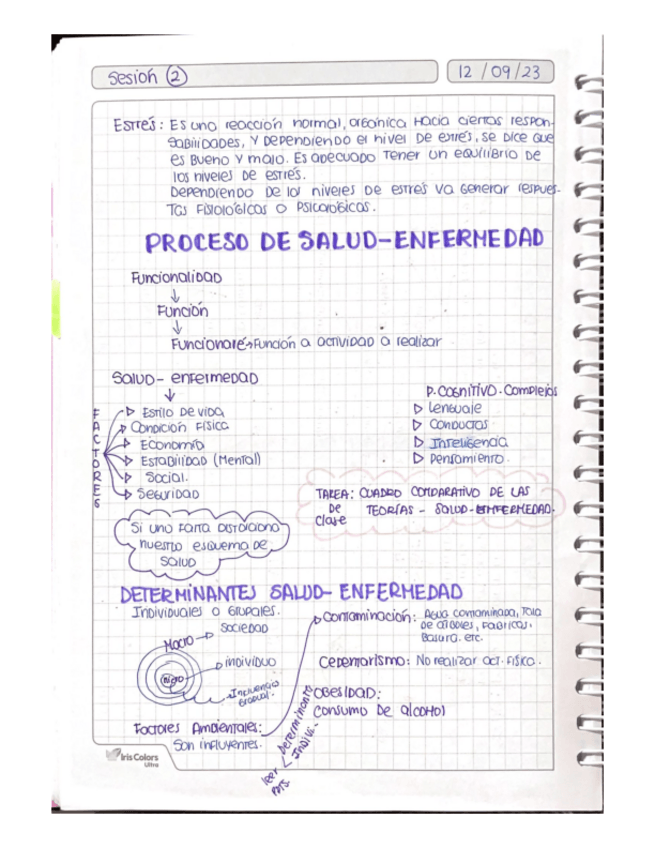 Sesión 2
12 / 09 / 23
Estrés: Es una reacción normal, organica Hacia ciertas respon-
sabilidades, y Dependiendo el nivel De estrés, se Dice que
es Bueno y malo. Es adecuado Tener un equilibrio De
los niveles de estrés.
Dependiendo De los niveles de estrés va Generar respues-
Tas Fisiológicas o Psicológicas.
PROCESO DE SALUD-ENFERMEDAD
Funcionalidad
↓
Función
↓
Funcionaré→Función a actividad a realizar
Salud- enfermedad
FACTORES
▷ Estilo De vida
▷ Condición Física
▷ Economía
▷ Estabilidad (Mental)
▷ Social.
▷ Seguridad
P. Cognitivo. Complejos
▷ Lenguaje
▷ Conductas
▷ Inteligencia
▷ Pensamiento.
TAREA: CUADRO COMPARATIVO DE LAS
De TEORÍAS - SALUD-ENFERMEDAD.
Clase
Si uno Falta Distorciona
nuestro esquema de
salud
DETERMINANTES SALUD- ENFERMEDAD
Individuales o Grupales.
Macro → Sociedad
▷ individuo
Influencia
Gradual.
Factores Ambientales:
Son influyentes.
▷ Contaminación: Agua contaminada, Tala
de arboles, Fabricas.
Basura. etc.
Cedentarismo: No realizar act. Fisica.
Obesidad:
Consumo De alcohol
Determinante
Indivi.
leer
Iris Colors
Ultra